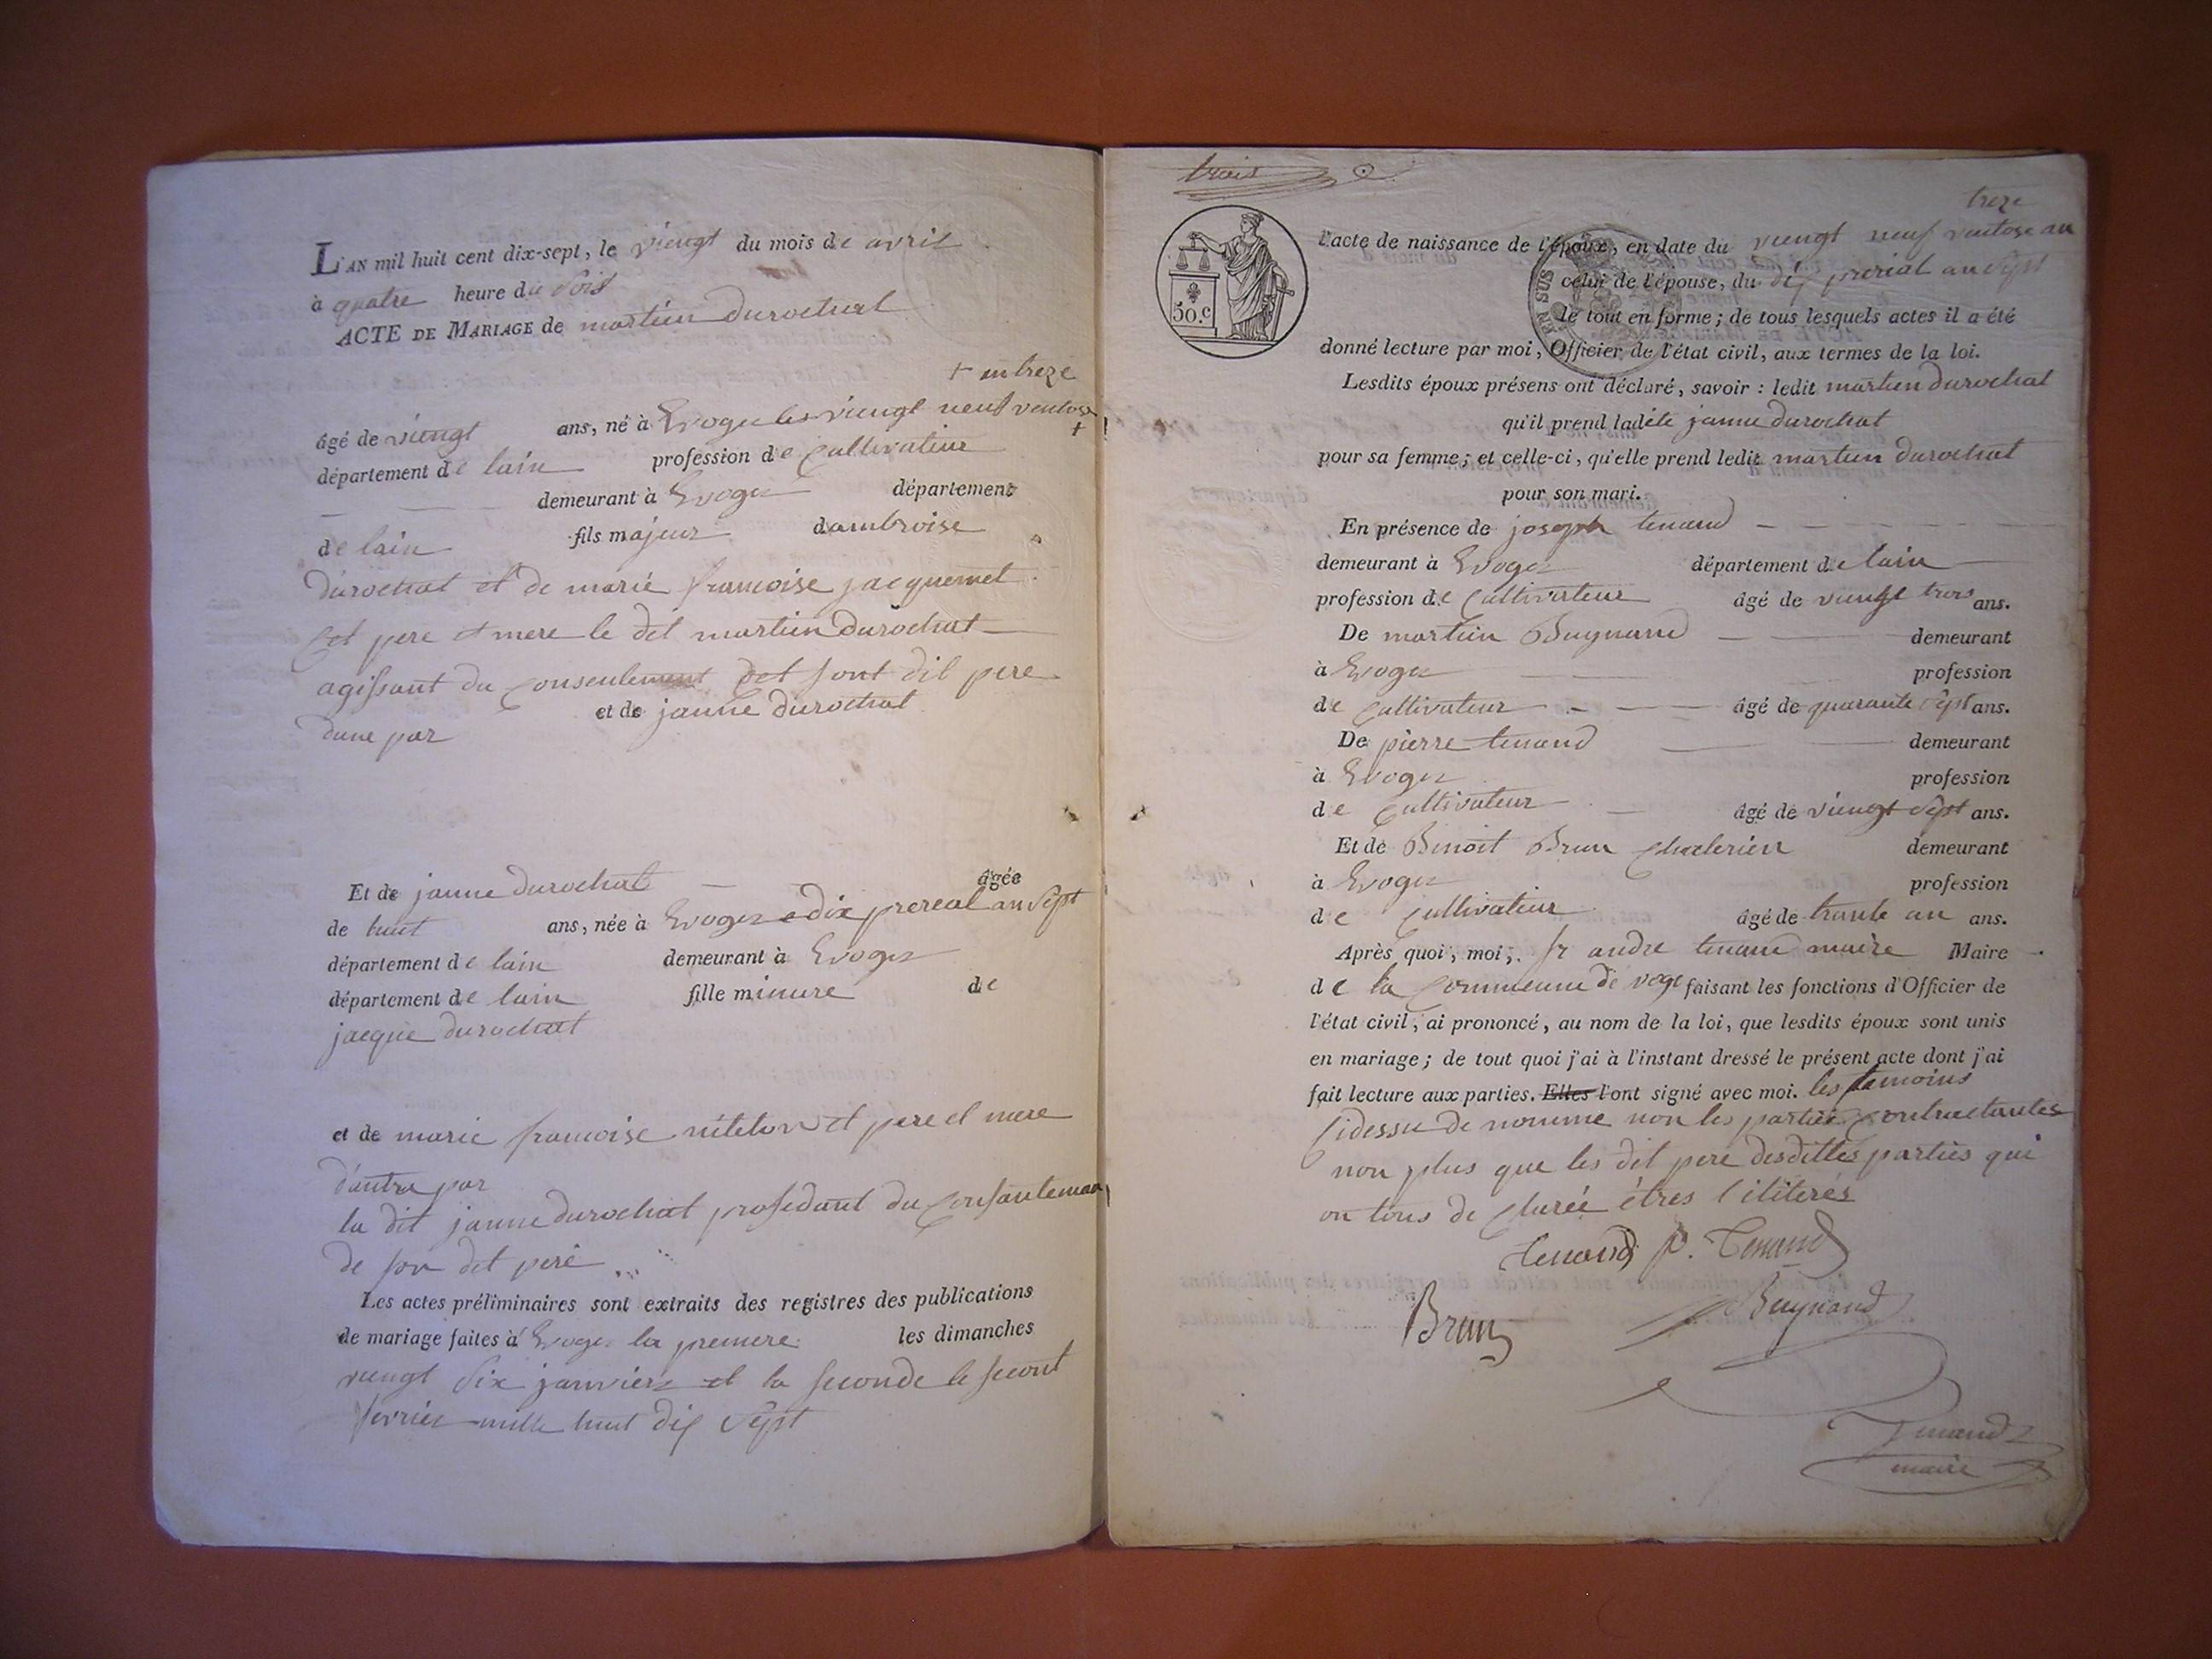 L'AN mil huit cent dix-sept, le viengt du mois de avril
à quatre heure du soir
ACTE DE MARIAGE de martin durochat
+ an treze
âgé de viengt ans, né à Evoges les viengt neuf ventose +
département de lain profession de Cultivateur
demeurant à Evoges département
de lain fils majeur dambroise
durochat et de marie francoise jacquemet
Cet pere et mere le det martin durochat
agissant du Consentement det sont dit pere
et de janne durochat
dune par
Et de janne durochat âgée
de huit ans, née à Evoges dix prereal an sept
département de lain demeurant à Evoges
département de lain fille minure de
jacque durochat
et de marie francoise et pere et mere
dautre par
la dit janne durochat prosedant du Consanteman
de son det pere
Les actes préliminaires sont extraits des registres des publications
de mariage faites à Evoges la premere les dimanches
viengt six janvier et la seconde le secont
fevrier mille huit dix sept
trois
treze
50.c
SUS EN
l'acte de naissance de l'époux, en date du viengt neuf ventose an
celui de l'épouse, du dix prerial an sept
le tout en forme; de tous lesquels actes il a été
donné lecture par moi, Officier de l'état civil, aux termes de la loi.
Lesdits époux présens ont déclaré, savoir : ledit martin durochat
qu'il prend ladite janne durochat
pour sa femme; et celle-ci, qu'elle prend ledit martin durochat
pour son mari.
En présence de joseph tenand
demeurant à Evoges département de lain
profession de Cultivateur âgé de viengt trois ans.
De martin Buynand demeurant
à Evoges profession
de Cultivateur âgé de quarante sept ans.
De pierre tenand demeurant
à Evoges profession
de Cultivateur âgé de viengt sept ans.
Et de Benoit Brun demeurant
à Evoges profession
de Cultivateur âgé de trante un ans.
Après quoi, moi, sr andre tenand maire Maire
de la Commeune de voge faisant les fonctions d'Officier de
l'état civil, ai prononcé, au nom de la loi, que lesdits époux sont unis
en mariage; de tout quoi j'ai à l'instant dressé le présent acte dont j'ai
fait lecture aux parties. Elles l'ont signé avec moi. les temoins
sidessu de nomme non les parties Contractantes
non plus que les dit pere desdittes parties qui
on tous de Claree êtres iliterés
tenand P. Tenand
Brun Buynand
Tenand
maire